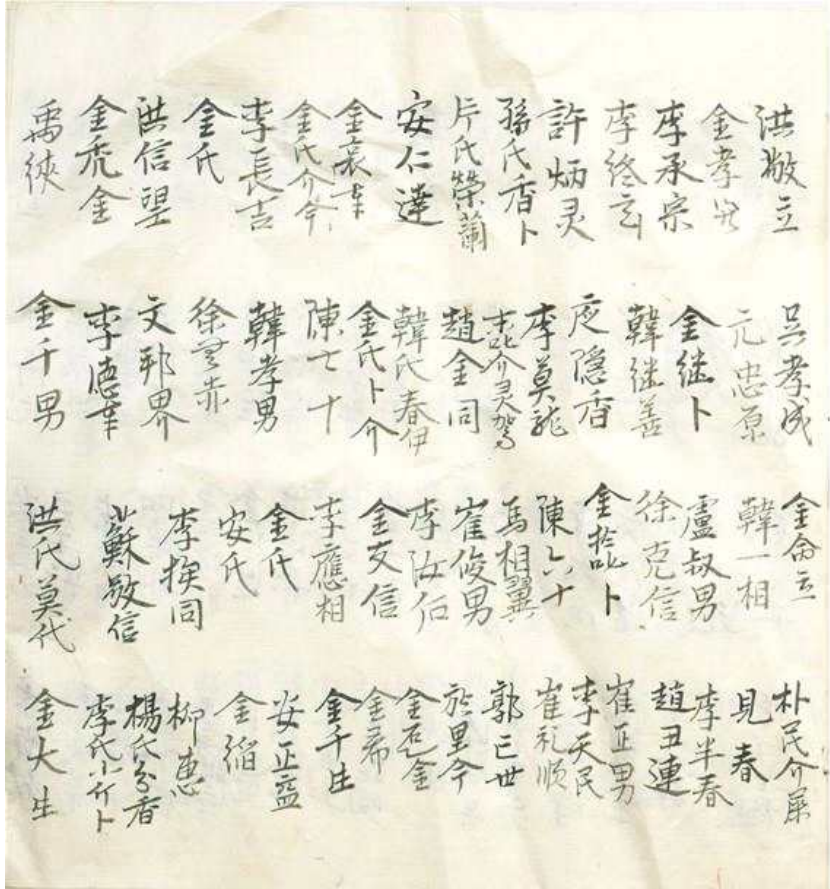 洪敬立
金孝안
李承宗
李終玄
許炳灵
孫氏香卜
片氏榮蘭
安仁達
金哀夲
金氏介今
李長吉
金氏
洪信望
金虎金
禹俠
吳孝成
元忠原
金継卜
韓継善
庋隠香
李莫龍
趙金同
韓氏春伊
金氏卜介
陳七十
韓孝男
徐云赤
文邦界
李德幸
金千男
金命立
韓一相
盧叔男
徐克信
陳六十
馬相翼
崔俊男
李汝石
金友信
李應相
金氏
安氏
李挨同
蘇敬信
洪氏莫代
朴氏介屎
見春
李半春
趙丑連
崔正男
李天民
崔礼順
郭已世
於里今
金京金
金希
金千生
安正益
金緇
柳惠
楊氏分香
李氏小斤卜
金大生